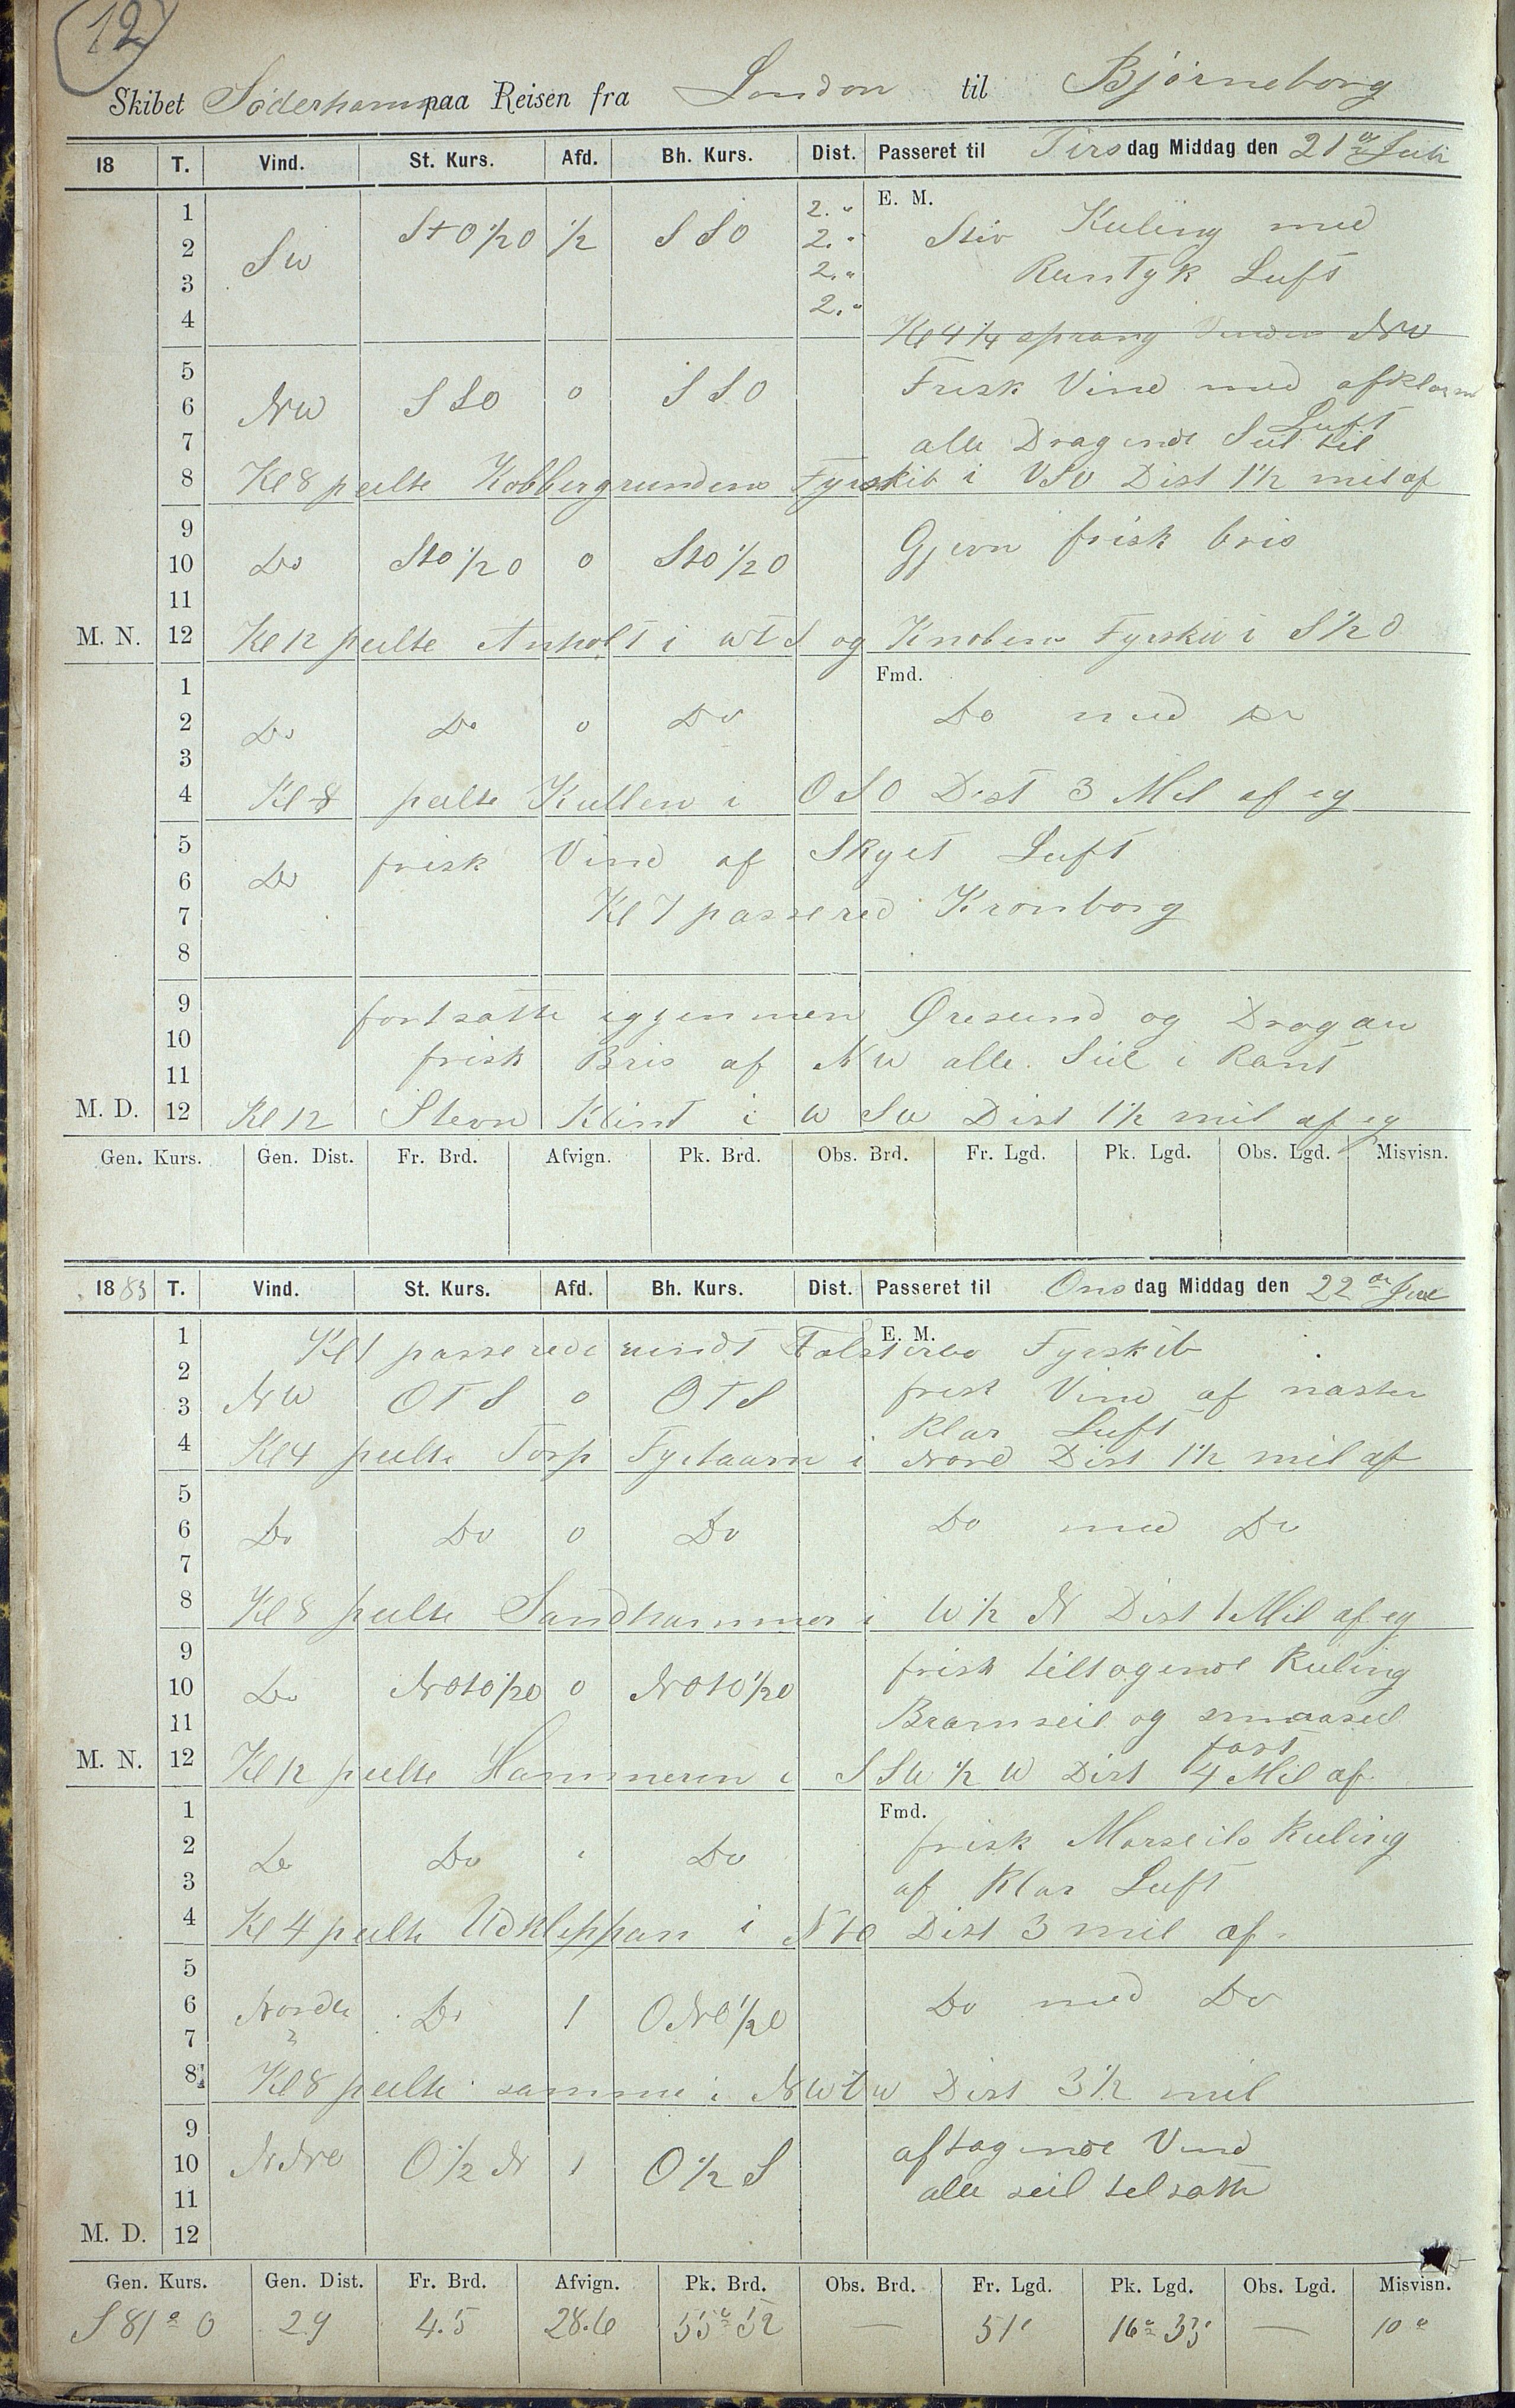 12
Skibet Söderhamn paa Reisen fra London til Bjørneborg
18 T. Vind. St. Kurs. Afd. Bh. Kurs. Dist. Passeret til Tirsdag Middag den 21de Juli
E. M.
1 2 3 4
SW StO½O ½ SSO 2." 2." 2." 2."
Stiv Kuling med
Runtyk Luft
Kl 4¼ sprang Vinden NW
5 6 7 8
NW SSO 0 SSO Frisk Vind med afklaren
Luft
alle Dragende Seil til
Kl 8 peilte Kobbergrundens Fyrskib i VSV Dist 1½ mil af
9 10 11
Do StO½O 0 StO½O Gjevn frisk bris
M. N. 12 Kl 12 peilte Anholt i WtS og Knobens Fyrskib i S½O
Fmd.
1 2 3 4
Do Do 0 Do Do med Do
peilte Kullen i OSO Dist 3 Mil af eg
5 6 7 8
Do frisk Vind af Skyet Luft
Kl 7 passered Kronborg
9 10 11
fortsatte iggjenmen Øresund og Dragøu
frisk Bris af NW alle Seil i Rant
M. D. 12 Kl 12 Stevn Klint i WSW Dist 1½ mil af eg
Gen. Kurs. Gen. Dist. Fr. Brd. Afvign. Pk. Brd. Obs. Brd. Fr. Lgd. Pk. Lgd. Obs. Lgd. Misvisn.
1883 T. Vind. St. Kurs. Afd. Bh. Kurs. Dist. Passeret til Onsdag Middag den 22de
E. M.
1 2 3 4
Kl 1 passerede rundt Falsterbo Fyrskib
NW OTS 0 OTS frisk Vind af næsten
klar Luft
Kl 4 peilte Torp Fyrtaarn i Nord Dist 1½ mil af
5 6 7 8
Do Do 0 Do Do med Do
Kl 8 peilte Sandhammer i W½N Dist 1 Mil af eg
9 10 11
Do NOtO½O 0 NOtO½O frisk tiltagende Kuling
Bramseil og smaaseil
fast
M. N. 12 Kl 12 peilte Hammeren i SSW½W Dist 4 Mil af
Fmd.
1 2 3 4
Do Do Do frisk Marseils Kuling
af Klar Luft
Kl 4 peilte Udklippan i NtO Dist 3 mil af
5 6 7 8
Nordl Do 1 ONO½O Do med Do
Kl 8 peilte samme i NWtW Dist 3½ mil
9 10 11
NNO O½N 1 O½S aftagende Vind
alle seil tilsatte
M. D. 12
Gen. Kurs. Gen. Dist. Fr. Brd. Afvign. Pk. Brd. Obs. Brd. Fr. Lgd. Pk. Lgd. Obs. Lgd. Misvisn.
S 81° O 29 4.5 28.6 55° 52 — 51' 16° 33' — 10°